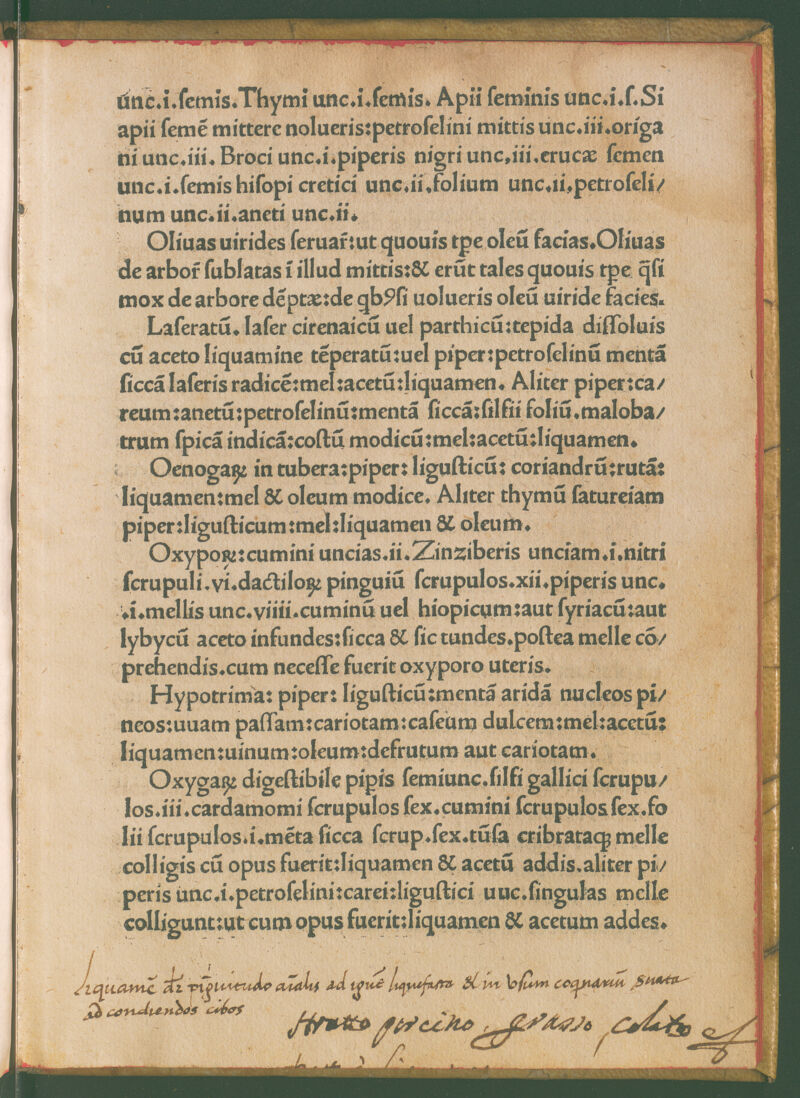 unc.i.ſemis.Thymi unc.i.ſemis. Apii ſeminis unc.i.ſ.Si
apii ſemẽ mittere nolueris:petroſelini mittis unc.iii.origa
ni unc.iii. Broci unc.i.piperis nigri unc.iii.erucæ ſemen
unc.i.ſemis hiſopi cretici unc.ii.folium unc.ii.petroſeli/
num unc.ii.aneti unc.ii.
Oliuas uirides ſeruar̃:ut quouis tpe oleũ facias.Oliuas
de arbor̃ ſublatas ĩ illud mittis:& erũt tales quouis tpe q̃ſi
mox de arbore dẽptæ:de qbꝰſi uolueris oleũ uiride facies.
Laſeratũ. laſer cirenaicũ uel parthicũ:tepida diſſoluis
cũ aceto liquamine tẽperatũ:uel piper:petroſelinũ mentã
ſiccã laſeris radicẽ:mel:acetũ:liquamen. Aliter piper:ca/
reum:anetũ:petroſelinũ:mentã ſiccã:ſilfii foliũ.maloba/
trum ſpicã indicã:coſtũ modicũ:mel:acetũ:liquamen.
Oenogaꝝ in tubera:piper: liguſticũ: coriandrũ:rutã:
liquamen:mel & oleum modice. Aliter thymũ ſatureiam
piper:liguſticum:mel:liquamen & oleum.
Oxypoꝝ:cumini uncias.ii.Zinziberis unciam.i.nitri
ſcrupuli.vi.dactiloꝝ pinguiũ ſcrupulos.xii.piperis unc.
.i.mellis unc.viiii.cuminũ uel hiopicum:aut ſyriacũ:aut
lybycũ aceto infundes:ſicca & ſic tundes.poſtea melle cõ/
prehendis.cum neceſſe fuerit oxyporo uteris.
Hypotrima: piper: liguſticũ:mentã aridã nucleos pi/
neos:uuam paſſam:cariotam:caſeum dulcem:mel:acetũ:
liquamen:uinum:oleum:defrutum aut cariotam.
Oxygaꝝ digeſtibile pipis ſemiunc.ſilfi gallici ſcrupu/
los.iii.cardamomi ſcrupulos ſex.cumini ſcrupulos ſex.fo
lii ſcrupulos.i.mẽta ſicca ſcrup.ſex.tũſa cribrataqꝫ melle
colligis cũ opus fuerit:liquamen & acetũ addis.aliter pi/
peris unc.i.petroſelini:carei:liguſtici uuc.ſingulas melle
colligunt:ut cum opus fuerit:liquamen & acetum addes.
liquamẽ dr̃ pĩguitudo aĩalis ad ignẽ liquefacta & in vſum
ad condiendos cibos
porcino, grasso, colato et